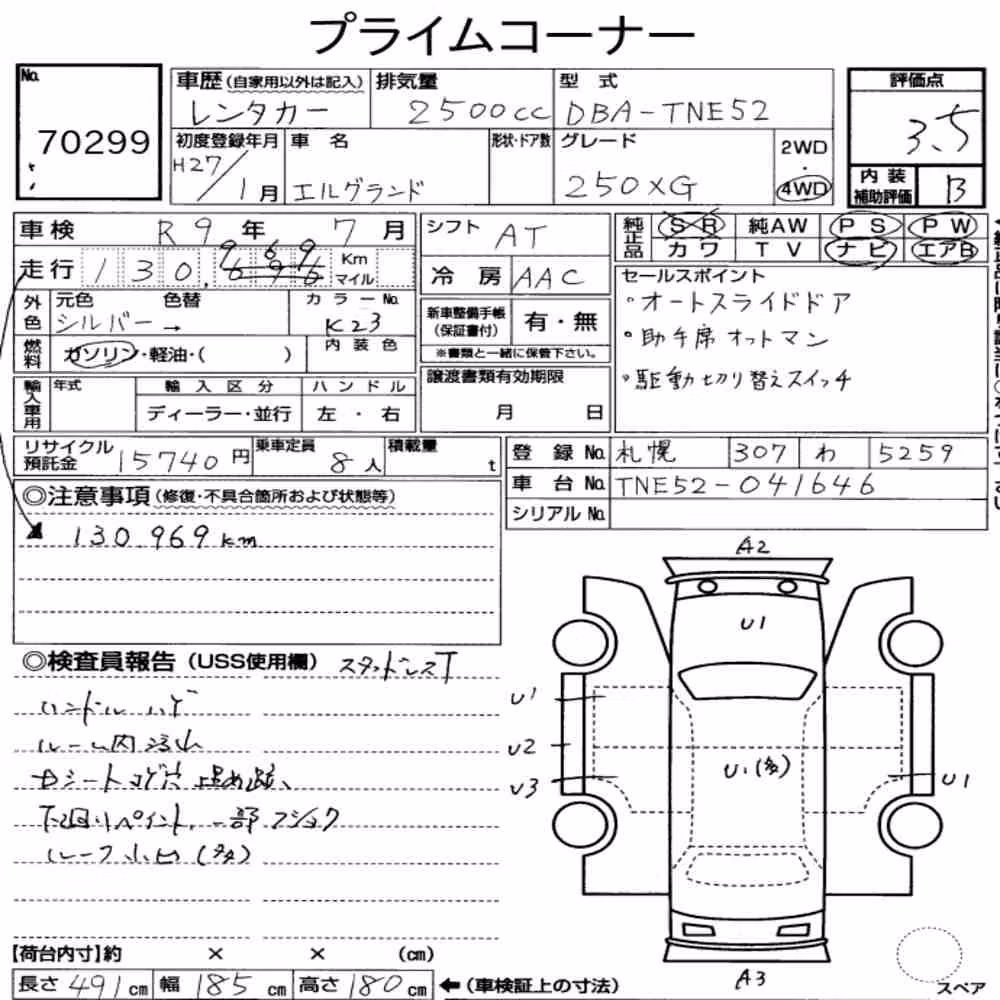 プライムコーナー
No.
70299
車歴(自家用以外は記入)
レンタカー
排気量
2500cc
型 式
DBA-TNE52
評価点
3.5
初度登録年月
H27/1月
車 名
エルグランド
形状・ドア数
グレード
250XG
2WD
・
4WD
内装
補助評価
B
車検 R9年 7月
走行 130,
969
696
Km
マイル
外色
元色 色替
シルバー→
カラーNo.
K23
燃料
ガソリン・軽油・( )
内装色
輸入車用
年式
輸入区分
ディーラー・並行
ハンドル
左・右
シフト AT
冷房 AAC
新車整備手帳
(保証書付)
有・無
※書類と一緒に保管下さい。
譲渡書類有効期限
月 日
純正品
SR 純AW PS PW
カワ TV ナビ エアB
セールスポイント
・オートスライドドア
・助手席オットマン
・駆動切り替えスイッチ
リサイクル
預託金 15740円
乗車定員
8人
積載量
t
登録No. 札幌 307 わ 5259
車台No. TNE52-041646
シリアルNo.
◎注意事項(修復・不具合箇所および状態等)
130.969km
◎検査員報告(USS使用欄) スタッドレスT
ハンドルハゲ
ルーム内汚れ
下廻りペイント、一部フショク
ルーフ小凹(多)
A2
U1
U1
U2
U3
U1(多)
U1
A3
スペア
【荷台内寸】約 × × (cm)
長さ491cm 幅185cm 高さ180cm ←(車検証上の寸法)